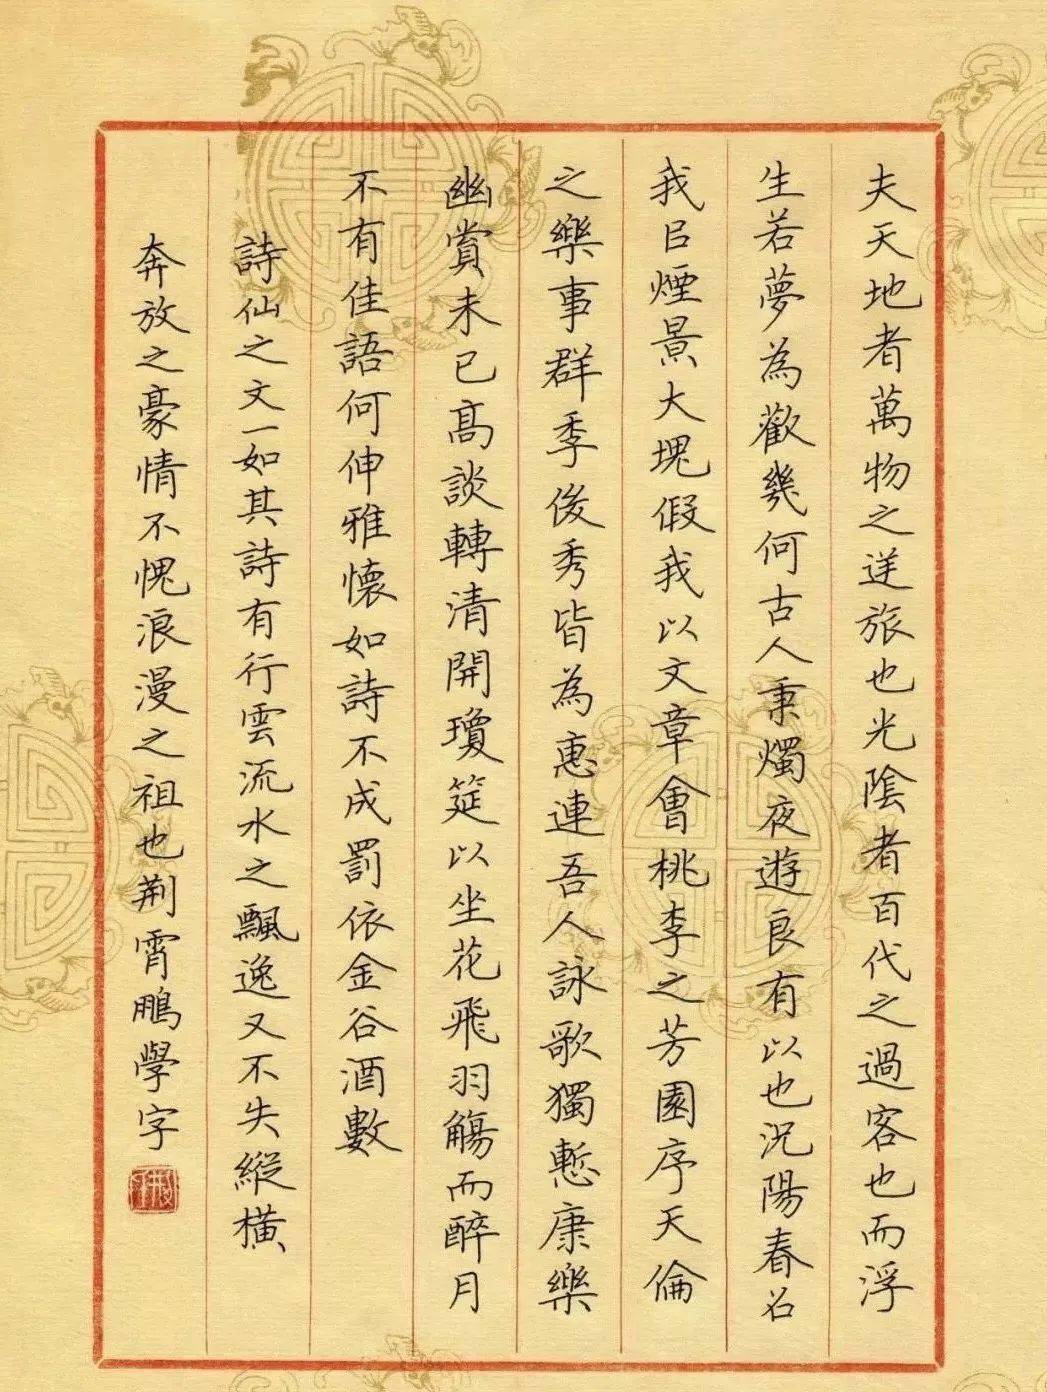 夫天地者萬物之逆旅也光陰者百代之過客也而浮
生若夢為歡幾何古人秉燭夜遊良有以也況陽春召
我㠯煙景大塊假我以文章會桃李之芳園序天倫
之樂事群季俊秀皆為惠連吾人詠歌獨慙康樂
幽賞未已高談轉清開瓊筵以坐花飛羽觴而醉月
不有佳語何伸雅懷如詩不成罰依金谷酒數
詩仙之文一如其詩有行雲流水之飄逸又不失縱橫
奔放之豪情不愧浪漫之祖也荆霄鵬學字